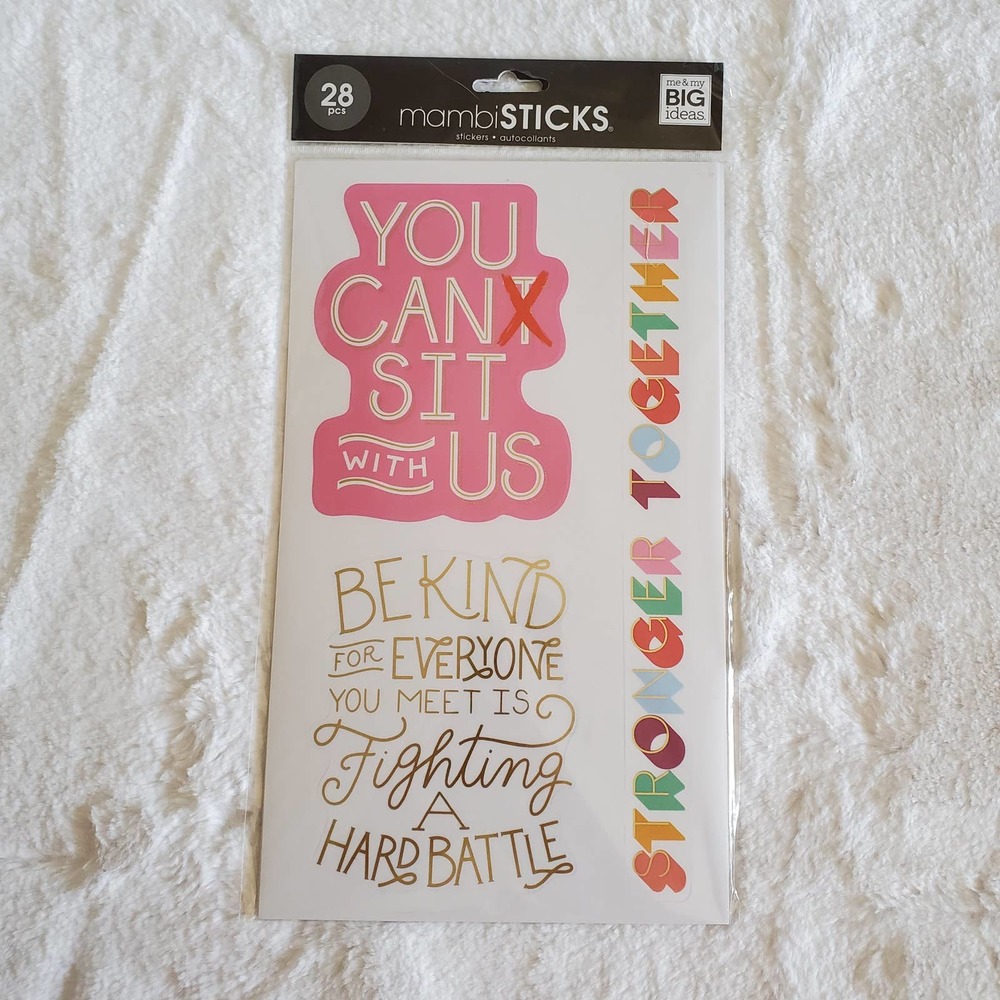 28
pcs
mambiSTICKS®
stickers • autocollants
me & my
BIG
ideas.
YOU
CANT
SIT
WITH US
BE KIND
FOR EVERYONE
YOU MEET IS
Fighting
A
HARD BATTLE
STRONGER TOGETHER